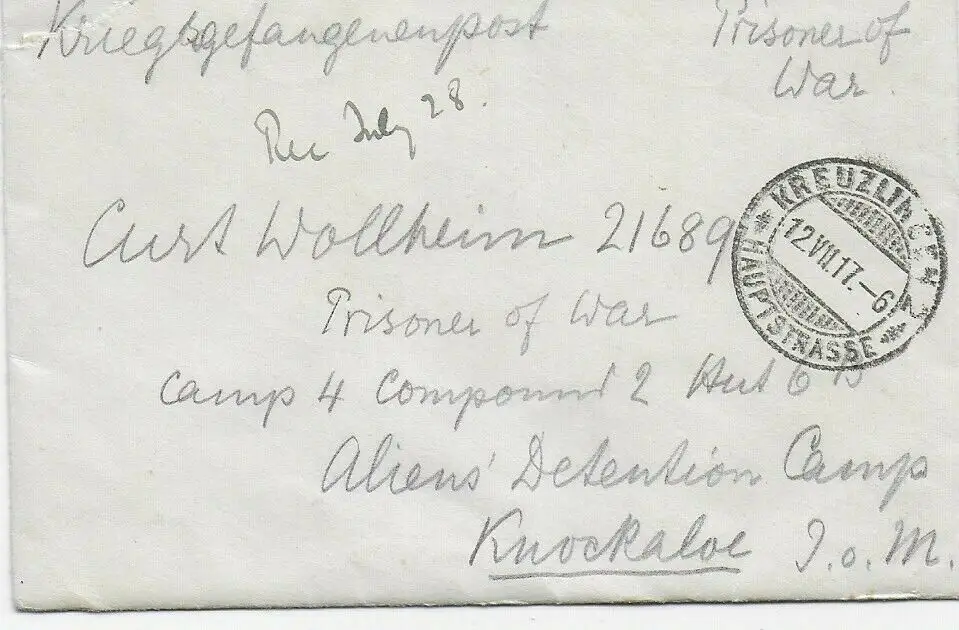 Kriegsgefangenenpost
Prisoner of
War.
Rec July 28.
Curt Wollheim 21689
KREUZLINGEN
12.VII.17.–6
HAUPTSTRASSE
Prisoner of War
Camp 4 Compound 2 Hut 6 B
Aliens' Detention Camp
Knockaloe I.o.M.